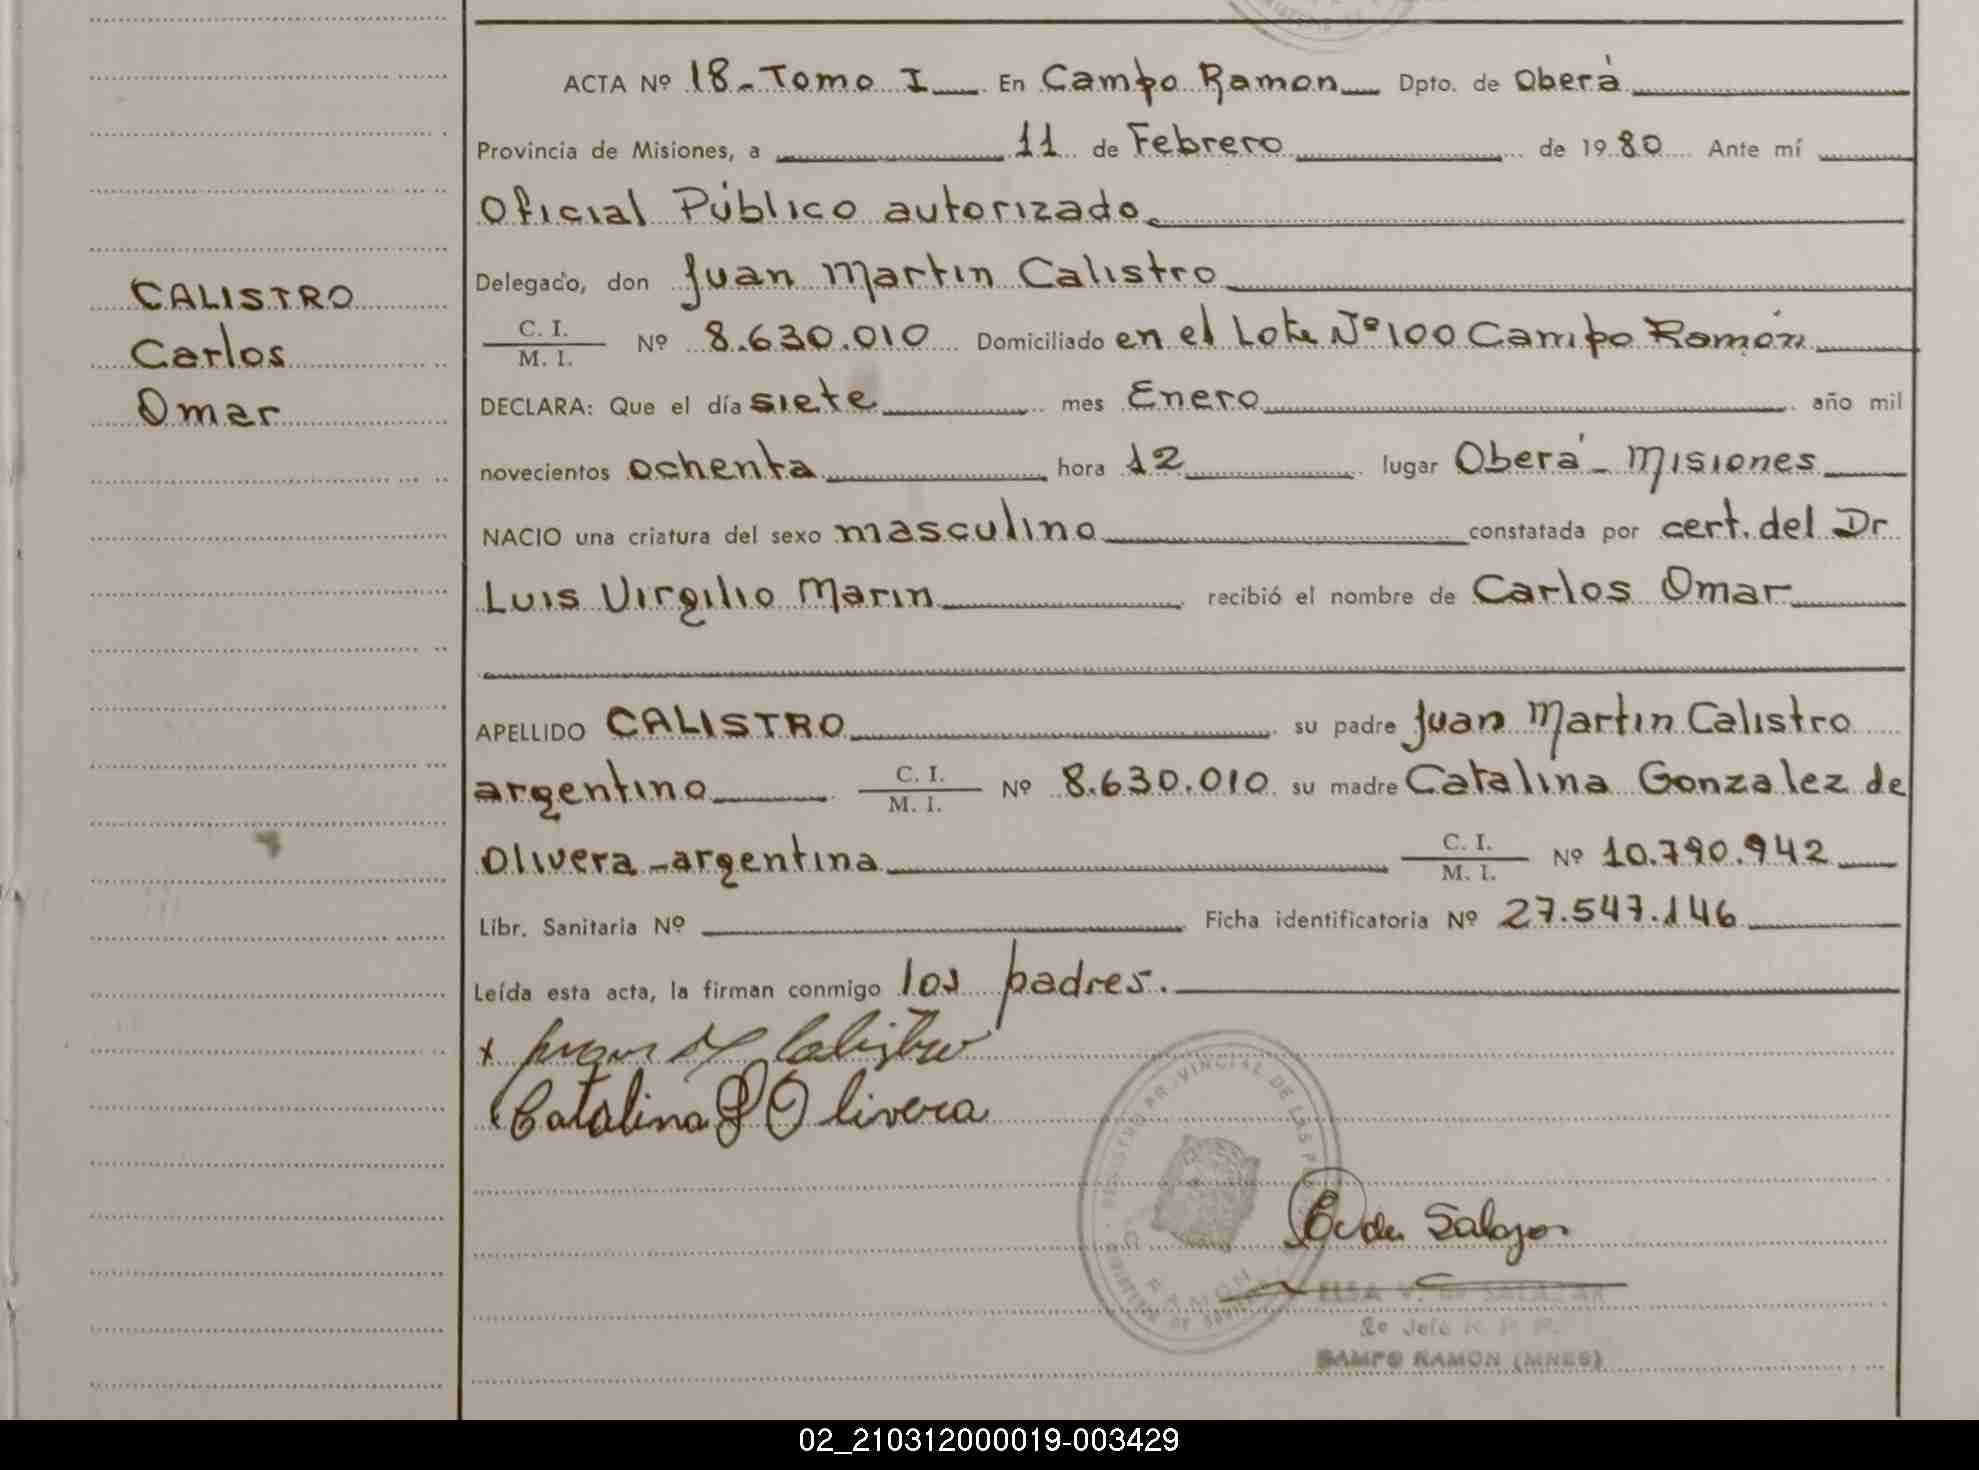 ACTA Nº 18 - Tomo I En Campo Ramon Dpto. de Oberá
Provincia de Misiones, a 11 de Febrero de 1980 Ante mí
Oficial Público autorizado.
Delegado, don Juan Martin Calistro
CALISTRO
Carlos
Omar
C. I.
M. I. Nº 8.630.010 Domiciliado en el Lote Nº 100 Campo Ramón
DECLARA: Que el día siete mes Enero año mil
novecientos ochenta hora 12 lugar Oberá - Misiones
NACIO una criatura del sexo masculino constatada por cert. del Dr
Luis Virgilio Marin recibió el nombre de Carlos Omar
APELLIDO CALISTRO su padre Juan Martin Calistro
argentino C. I. M. I. Nº 8.630.010 su madre Catalina Gonzalez de
Olivera - argentina C. I. M. I. Nº 10.790.942
Libr. Sanitaria Nº Ficha identificatoria Nº 27.547.146
Leída esta acta, la firman conmigo los padres.
x Juan M Calistro
Catalina G Olivera
REGISTRO PROVINCIAL DE LAS
RAMON
ELSA V. de SALAZAR
2º Jefe R. P. P.
CAMPO RAMON (MNES)
02_210312000019-003429